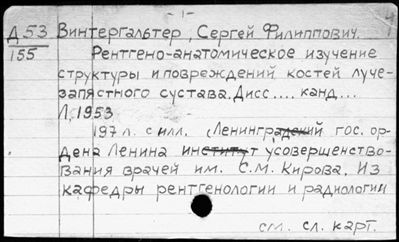 - 1 -
Д 53 Винтергальтер, Сергей Филиппович.
155 Рентгено-анатомическое изучение
структуры и повреждений костей луче-
запястного сустава. Дисс.... канд...
Л, 1953
197 л. с илл. (Ленинградский гос. ор-
дена Ленина институт усовершенство-
вания врачей им. С.М. Кирова. Из
кафедры рентгенологии и радиологии
см. сл. карт.